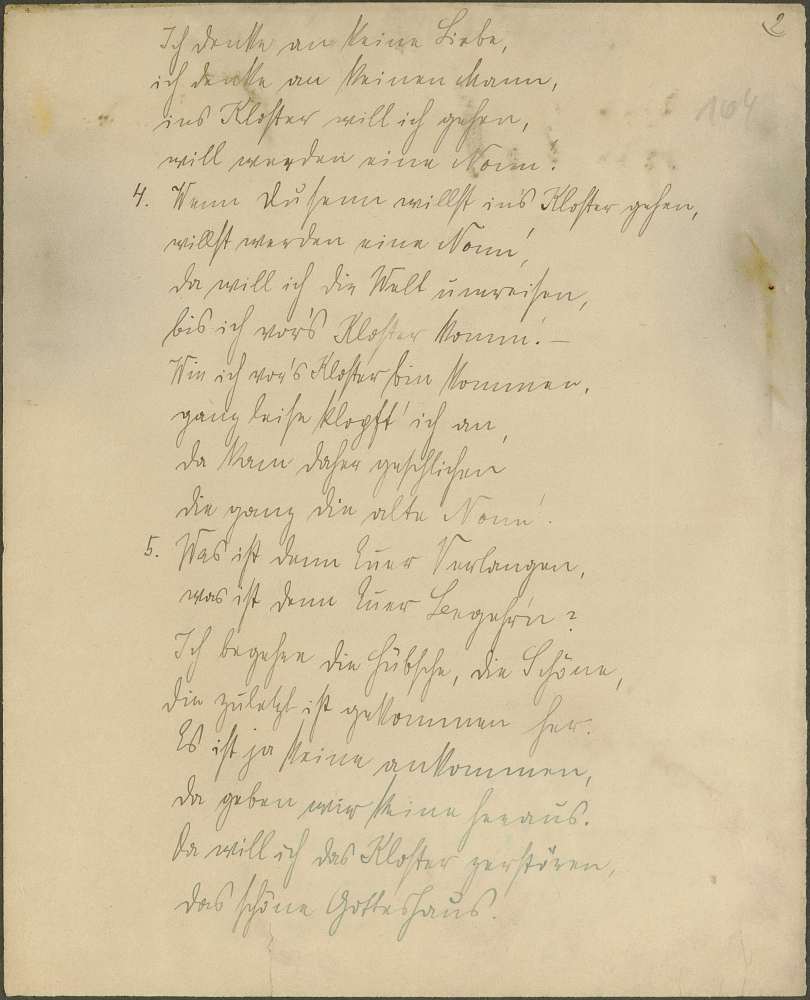 2
164
Ich denke an keine Liebe,
ich denke an keinen Mann,
ins Kloster will ich gehen,
will werden eine Nonn'.
4. Wenn Du henn willst in's Kloster gehen,
willst werden eine Nonn',
da will ich die Welt umreisen,
bis ich vor's Kloster komm'. –
Wie ich vor's Kloster bin kommen,
ganz leise klopft' ich an,
da kam daher geschlichen
die ganz die alte Nonn'.
5. Was ist denn Euer Verlangen,
was ist denn Euer Begehr'n?
Ich begehre die Hübsche, die Schöne,
die zuletzt ist gekommen her.
Es ist ja keine ankommen,
da geben wir keine heraus.
Da will ich das Kloster zerstören,
das schöne Gotteshaus.